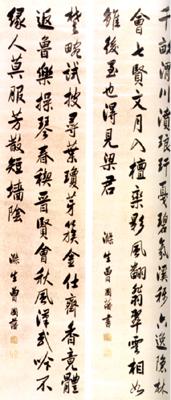 千畝渭川濆琅玕戛碧氛溪移六逸隱林
會七賢文月入檀欒影風翻翡翠雲相如
雖後至也得見梁君
滌生曾國藩書
楚畹試披尋葉瓊芽簇金仕齊香竟體
返魯樂操琴春禊晉賢會秋風漢武吟不
緣人莫服芳散短牆陰
滌生曾國藩